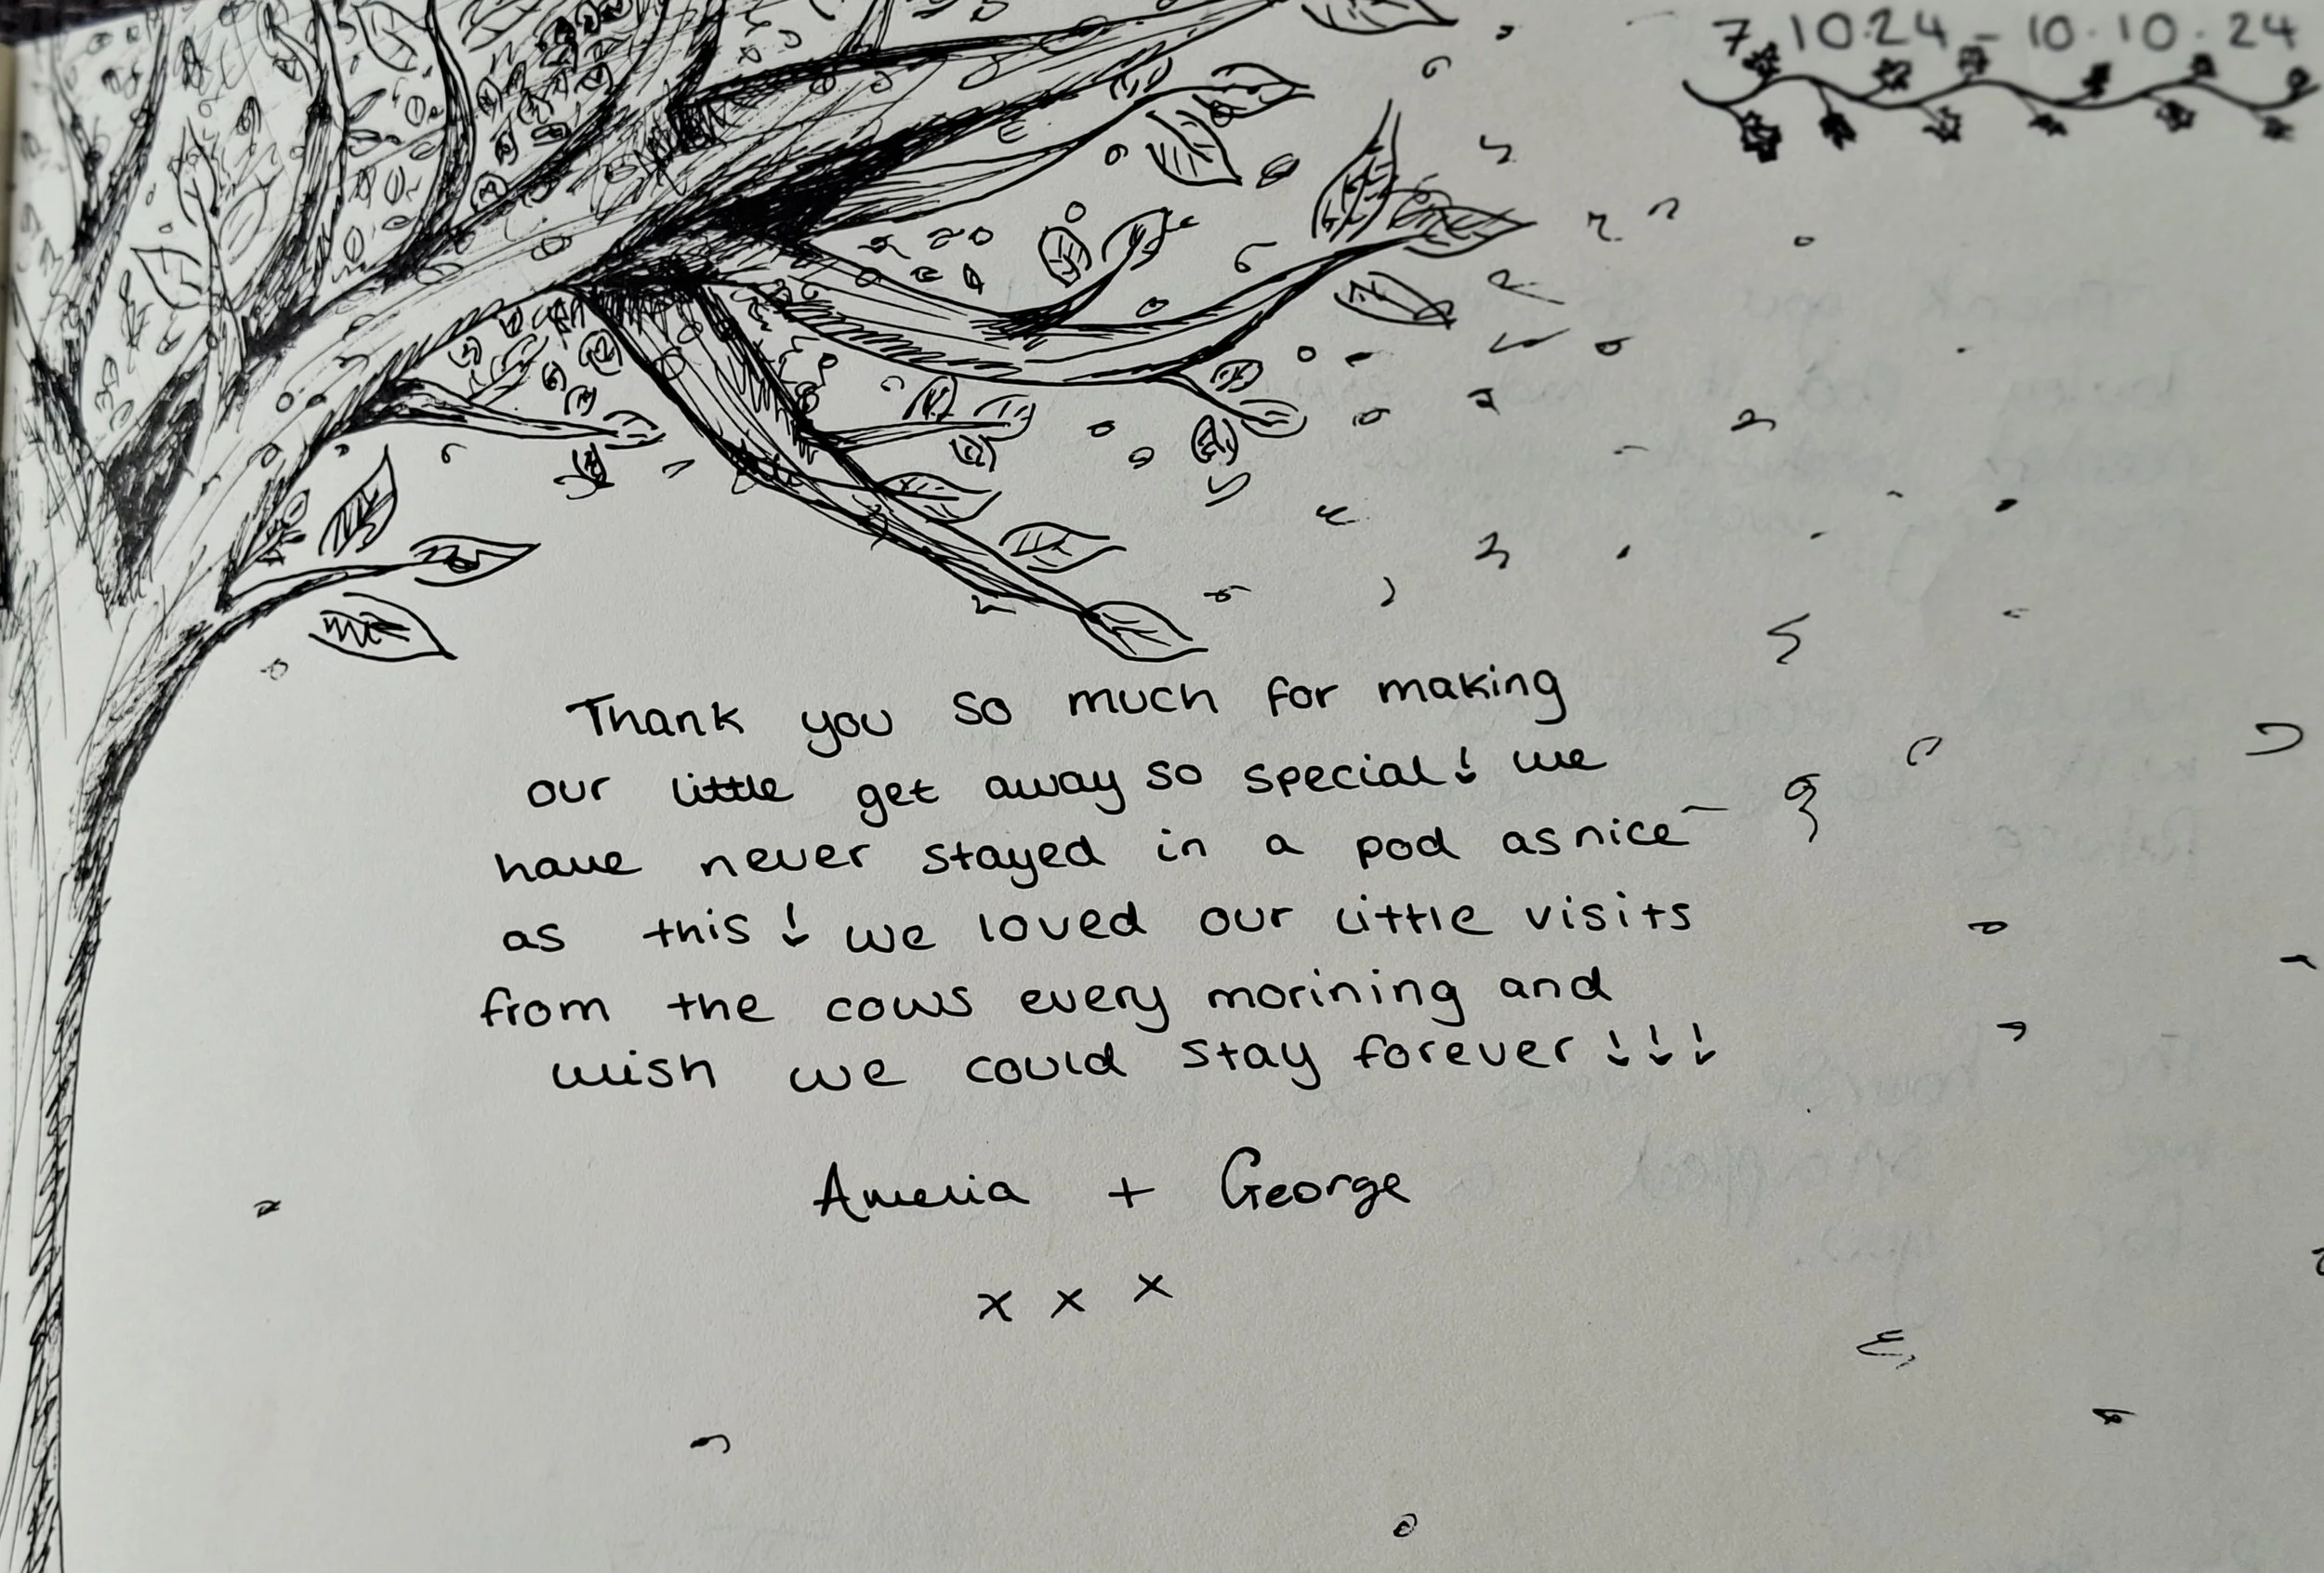 7.10.24 - 10.10.24
Thank you so much for making
our little get away so special! we
have never stayed in a pod as nice
as this! we loved our little visits
from the cows every morining and
wish we could stay forever!!!
Amelia + George
x x x